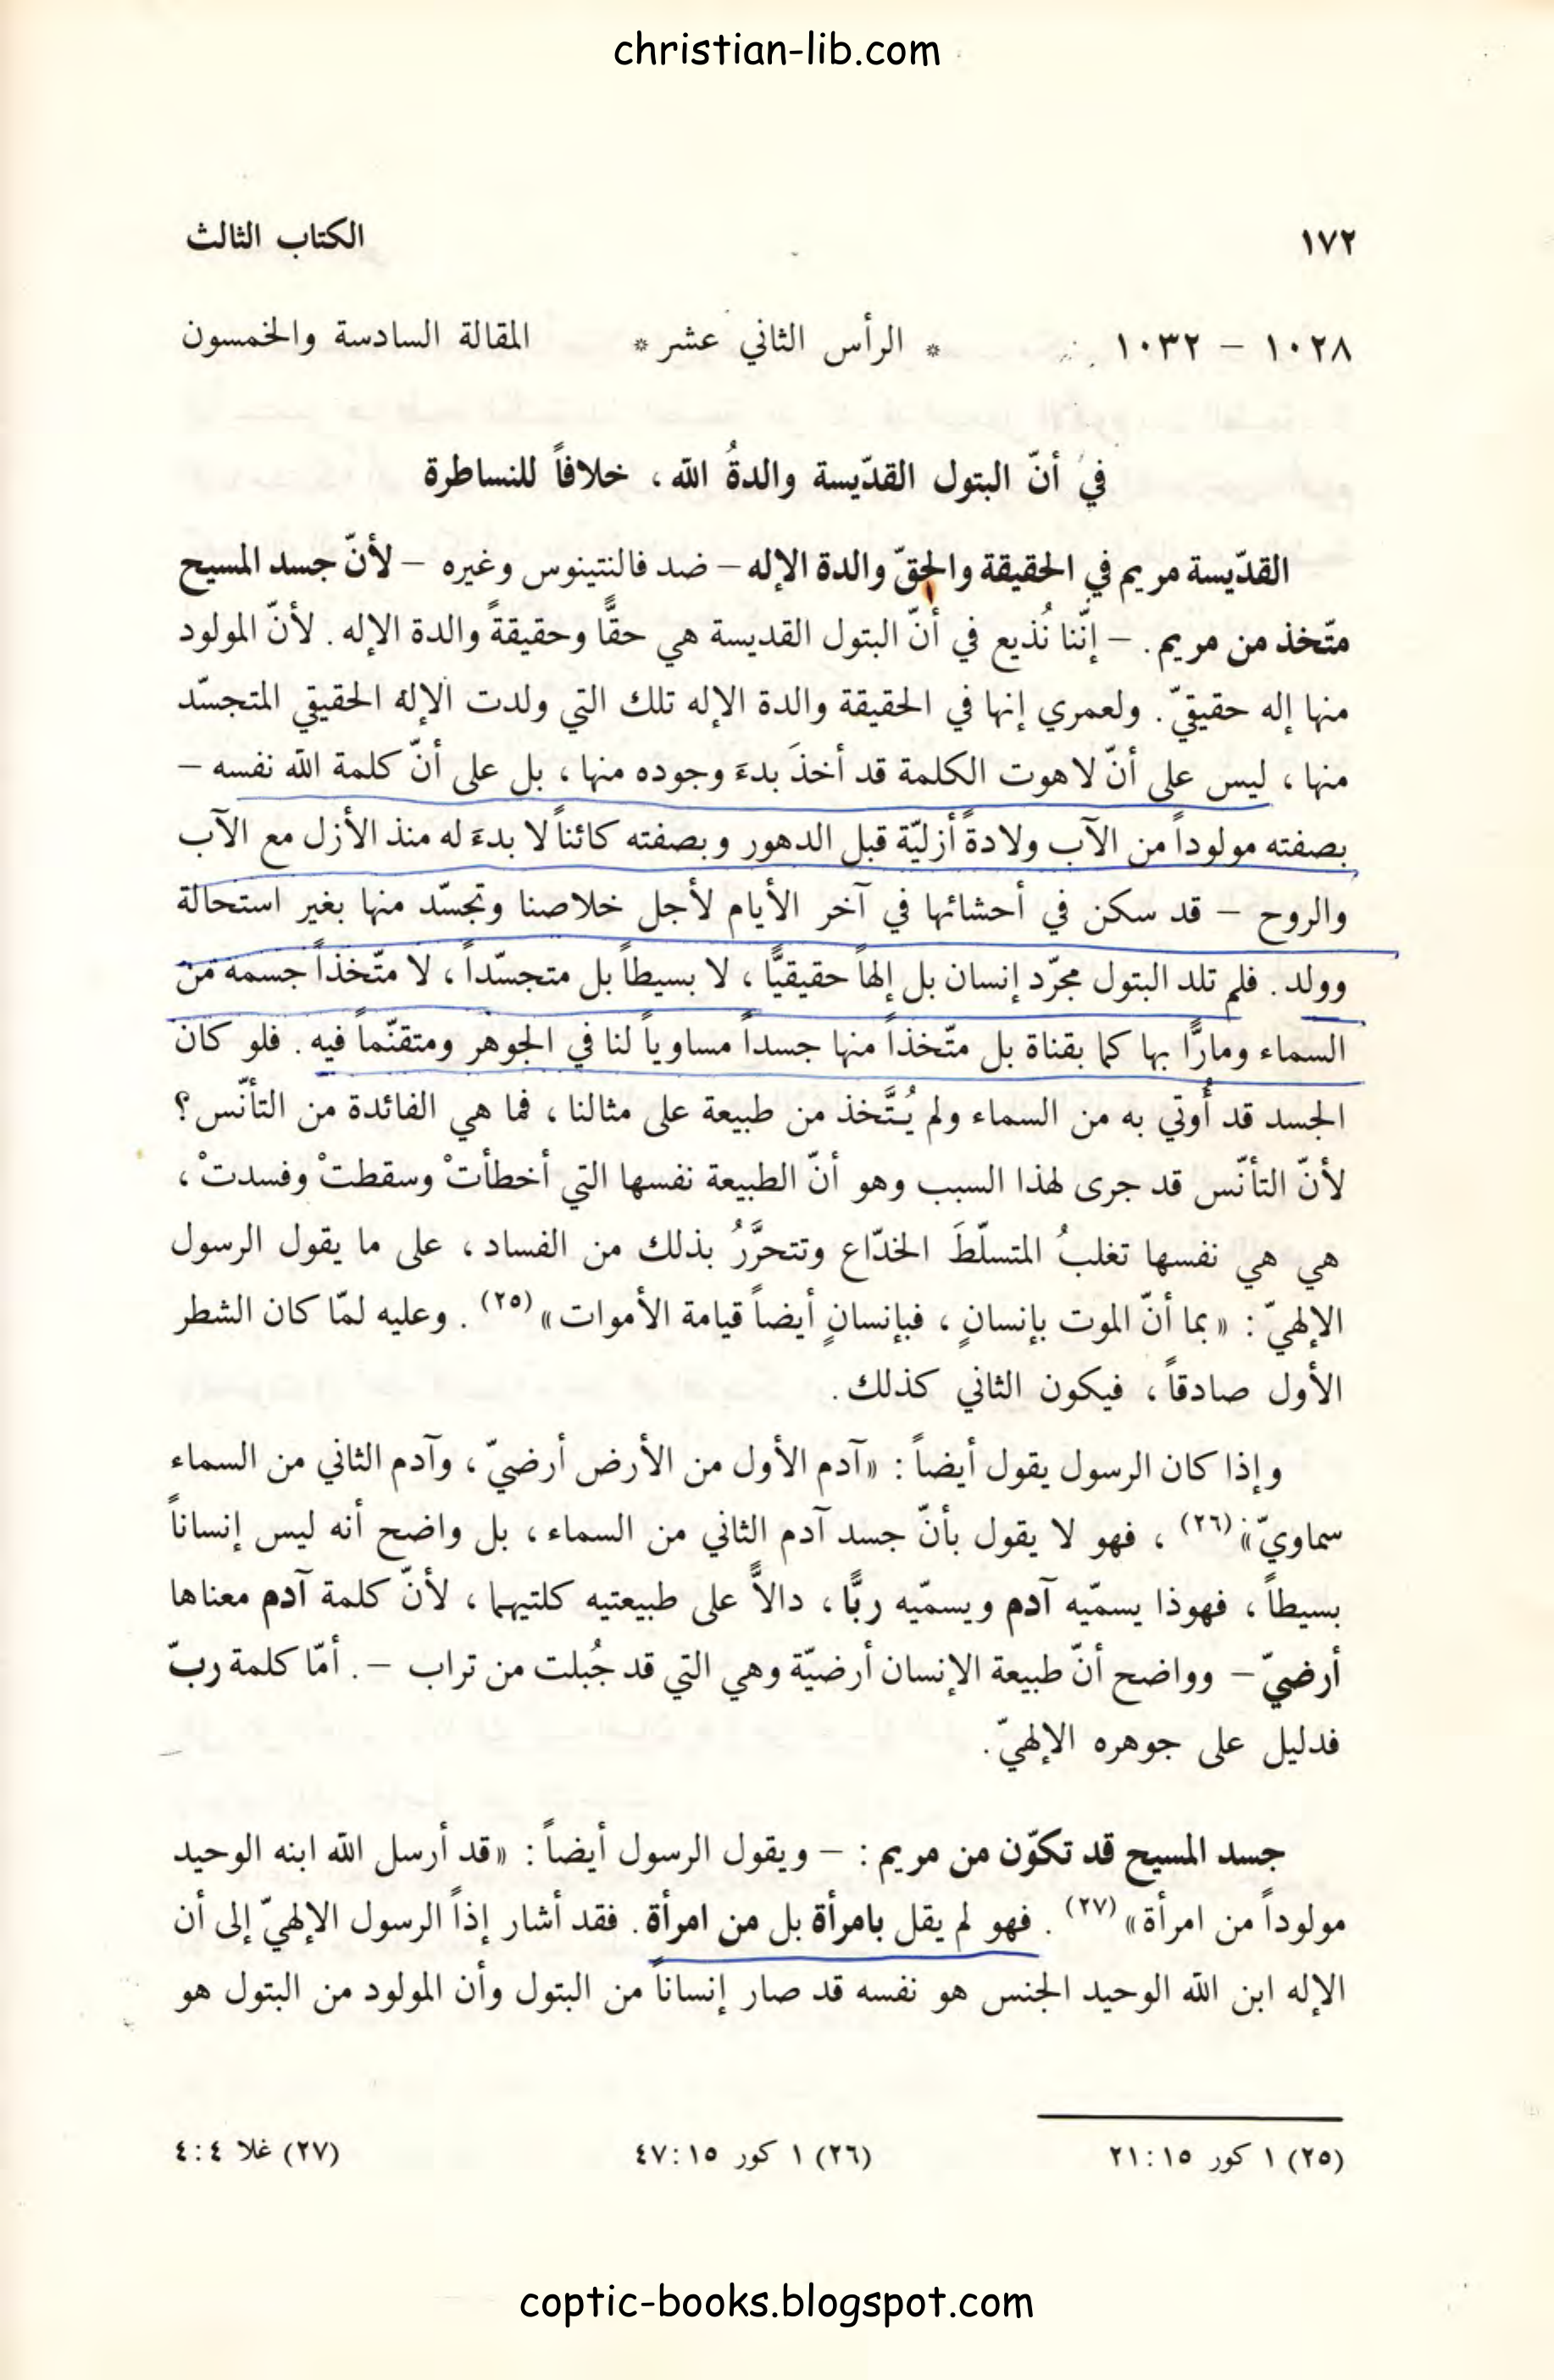 christian-lib.com
١٧٢ الكتاب الثالث
١٠٢٨ – ١٠٣٢ * الرأس الثاني عشر * المقالة السادسة والخمسون
في أنّ البتول القدّيسة والدةُ الله ، خلافاً للنساطرة
القدّيسة مريم في الحقيقة والحقّ والدة الإله – ضد فالنتينوس وغيره – لأنّ جسد المسيح
متّخذ من مريم . – إنّنا نُذيع في أنّ البتول القديسة هي حقًّا وحقيقةً والدة الإله . لأنّ المولود
منها إله حقيقيّ . ولعمري إنها في الحقيقة والدة الإله تلك التي ولدت الإله الحقيقي المتجسّد
منها ، ليس على أنّ لاهوت الكلمة قد أخذَ بدءَ وجوده منها ، بل على أنّ كلمة الله نفسه –
بصفته مولوداً من الآب ولادةً أزليّة قبل الدهور وبصفته كائناً لا بدءَ له منذ الأزل مع الآب
والروح – قد سكن في أحشائها في آخر الأيام لأجل خلاصنا وتجسّد منها بغير استحالة
وولد . فلم تلد البتول مجرّد إنسان بل إلهاً حقيقيًّا ، لا بسيطاً بل متجسّداً ، لا متّخذاً جسمه من
السماء ومارًّا بها كما بقناة بل متّخذاً منها جسداً مساوياً لنا في الجوهر ومتقنّماً فيه . فلو كان
الجسد قد أُوتي به من السماء ولم يُتَّخذ من طبيعة على مثالنا ، فما هي الفائدة من التأنّس ؟
لأنّ التأنّس قد جرى لهذا السبب وهو أنّ الطبيعة نفسها التي أخطأتْ وسقطتْ وفسدتْ ،
هي هي نفسها تغلبُ المتسلّطَ الخدّاع وتتحرَّرُ بذلك من الفساد ، على ما يقول الرسول
الإلهيّ : « بما أنّ الموت بإنسانٍ ، فبإنسانٍ أيضاً قيامة الأموات » (٢٥) . وعليه لمّا كان الشطر
الأول صادقاً ، فيكون الثاني كذلك .
وإذا كان الرسول يقول أيضاً : «آدم الأول من الأرض أرضيّ ، وآدم الثاني من السماء
سماويّ» (٢٦) ، فهو لا يقول بأنّ جسد آدم الثاني من السماء ، بل واضح أنه ليس إنساناً
بسيطاً ، فهوذا يسمّيه آدم ويسمّيه ربًّا ، دالاًّ على طبيعتيه كلتيهما ، لأنّ كلمة آدم معناها
أرضيّ – وواضح أنّ طبيعة الإنسان أرضيّة وهي التي قد جُبلت من تراب – . أمّا كلمة ربّ
فدليل على جوهره الإلهيّ .
جسد المسيح قد تكوّن من مريم : – ويقول الرسول أيضاً : «قد أرسل الله ابنه الوحيد
مولوداً من امرأة» (٢٧) . فهو لم يقل بامرأة بل من امرأة . فقد أشار إذاً الرسول الإلهيّ إلى أن
الإله ابن الله الوحيد الجنس هو نفسه قد صار إنساناً من البتول وأن المولود من البتول هو
(٢٥) ١ كور ١٥:٢١ (٢٦) ١ كور ١٥:٤٧ (٢٧) غلا ٤:٤
coptic-books.blogspot.com